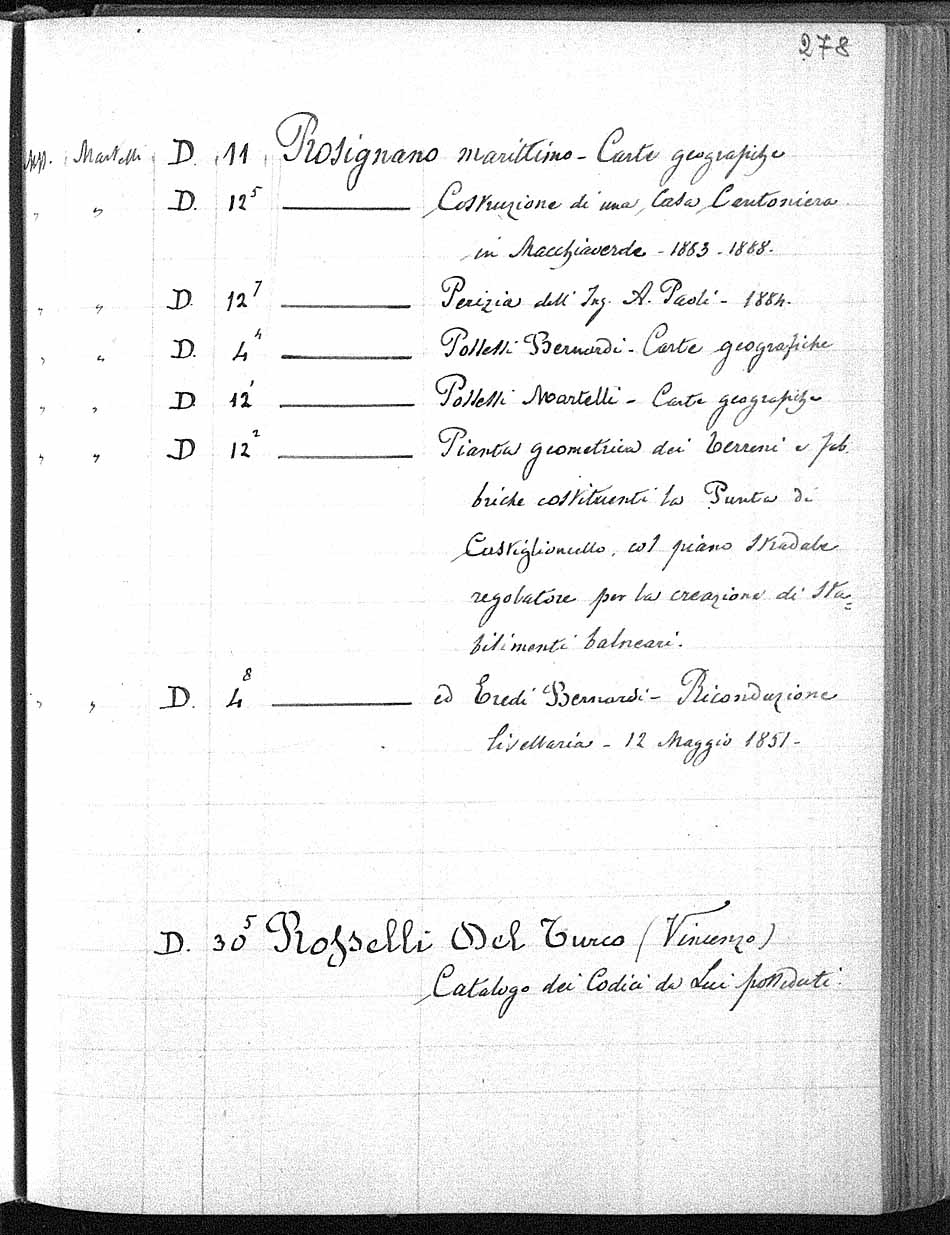 278
App. Martelli D. 11 Rosignano marittimo - Carte geografiche
" " D. 12⁵ ——— Costruzione di una Casa Cantoniera
in Macchiaverde - 1883 - 1888.
" " D. 12⁷ ——— Perizia dell' Ing. A. Paoli - 1884.
" " D. 4⁴ ——— Poltetti Bernardi - Carte geografiche
" " D 12¹ ——— Poltetti Martelli - Carte geografiche
" " D 12² ——— Pianta geometrica dei terreni e fab
briche costituenti la Punta di
Castiglioncello, col piano stradale
regolatore per la creazione di sta=
bilimenti balneari.
" " D. 4⁸ ——— ed Eredi Bernardi - Riconduzione
livellaria - 12 Maggio 1851 -
D. 30⁵ Rosselli Del Turco (Vincenzo)
Catalogo dei Codici da Lui posseduti.